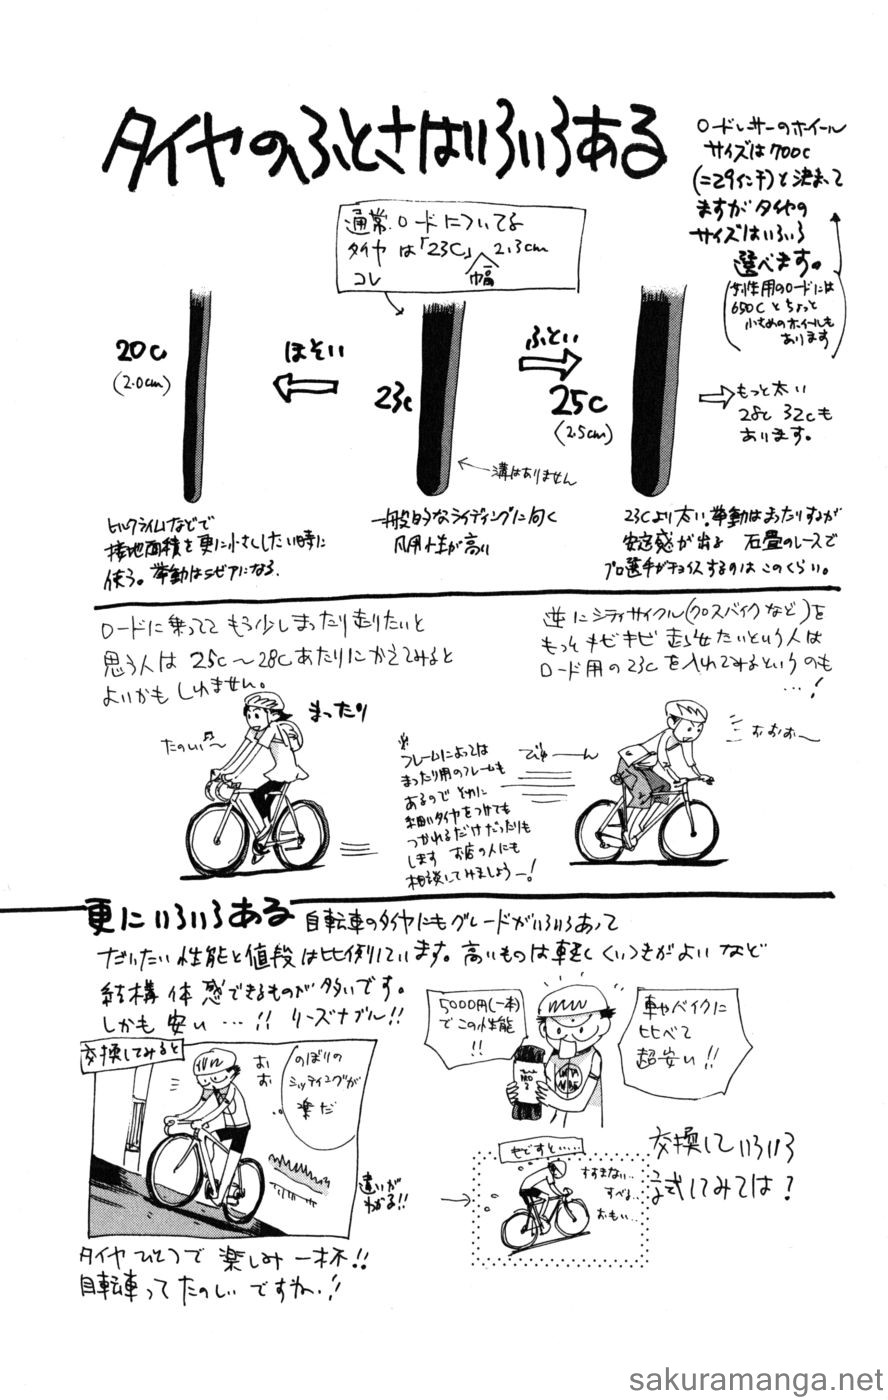 タイヤのふとさはいろいろある
ロードレーサーのホイール
サイズは700c
(=29インチ)と決まって
ますがタイヤの
サイズはいろいろ
選べます。
(女性用のロードには
650Cとちょっと
小さめのホイールも
あります)
通常ロードについてる
タイヤは「23C」 2.3cm
コレ 幅
20c
(2.0cm)
ほそい
23c
ふとい
25c
(2.5cm)
もっと太い
28c 32cも
あります。
溝はありません
ヒルクライムなどで
接地面積を更に小さくしたい時に
使う。挙動はシビアになる.
一般的なライディングに向く
汎用性が高い
23cより太い。挙動はまったりするが
安定感が出る 石畳のレースで
プロ選手がチョイスするのはこのくらい。
ロードに乗っててもう少しまったり走りたいと
思う人は25c〜28cあたりにかえてみると
よいかもしれません。
逆にシティサイクル(クロスバイクなど)を
もっとキビキビ走らせたいという人は
ロード用の23cを入れてみるというのも
…!
まったり
たのしい〜
※
フレームによっては
まったり用のフレームも
あるのでそれに
細いタイヤをつけても
つかれるだけだったりも
します お店の人にも
相談してみましょうー!
びゅーーん
おおお〜
更にいろいろある
自転車のタイヤにもグレードがいろいろあって
だいたい性能と値段は比例しています。高いものは軽くくいつきがよいなど
結構体感できるものが多いです。
しかも安い…!! リーズナブル!!
5000円(一本)
でこの性能
!!
車やバイクに
比べて
超安い!!
交換してみると
おお
のぼりの
シッティングが
楽だ
違いが
わかる!!
もどすと……
すすまない…
すべる…
おもい…
交換していろいろ
試してみては?
タイヤひとつで楽しみ一杯!!
自転車ってたのしいですね!!
sakuramanga.net